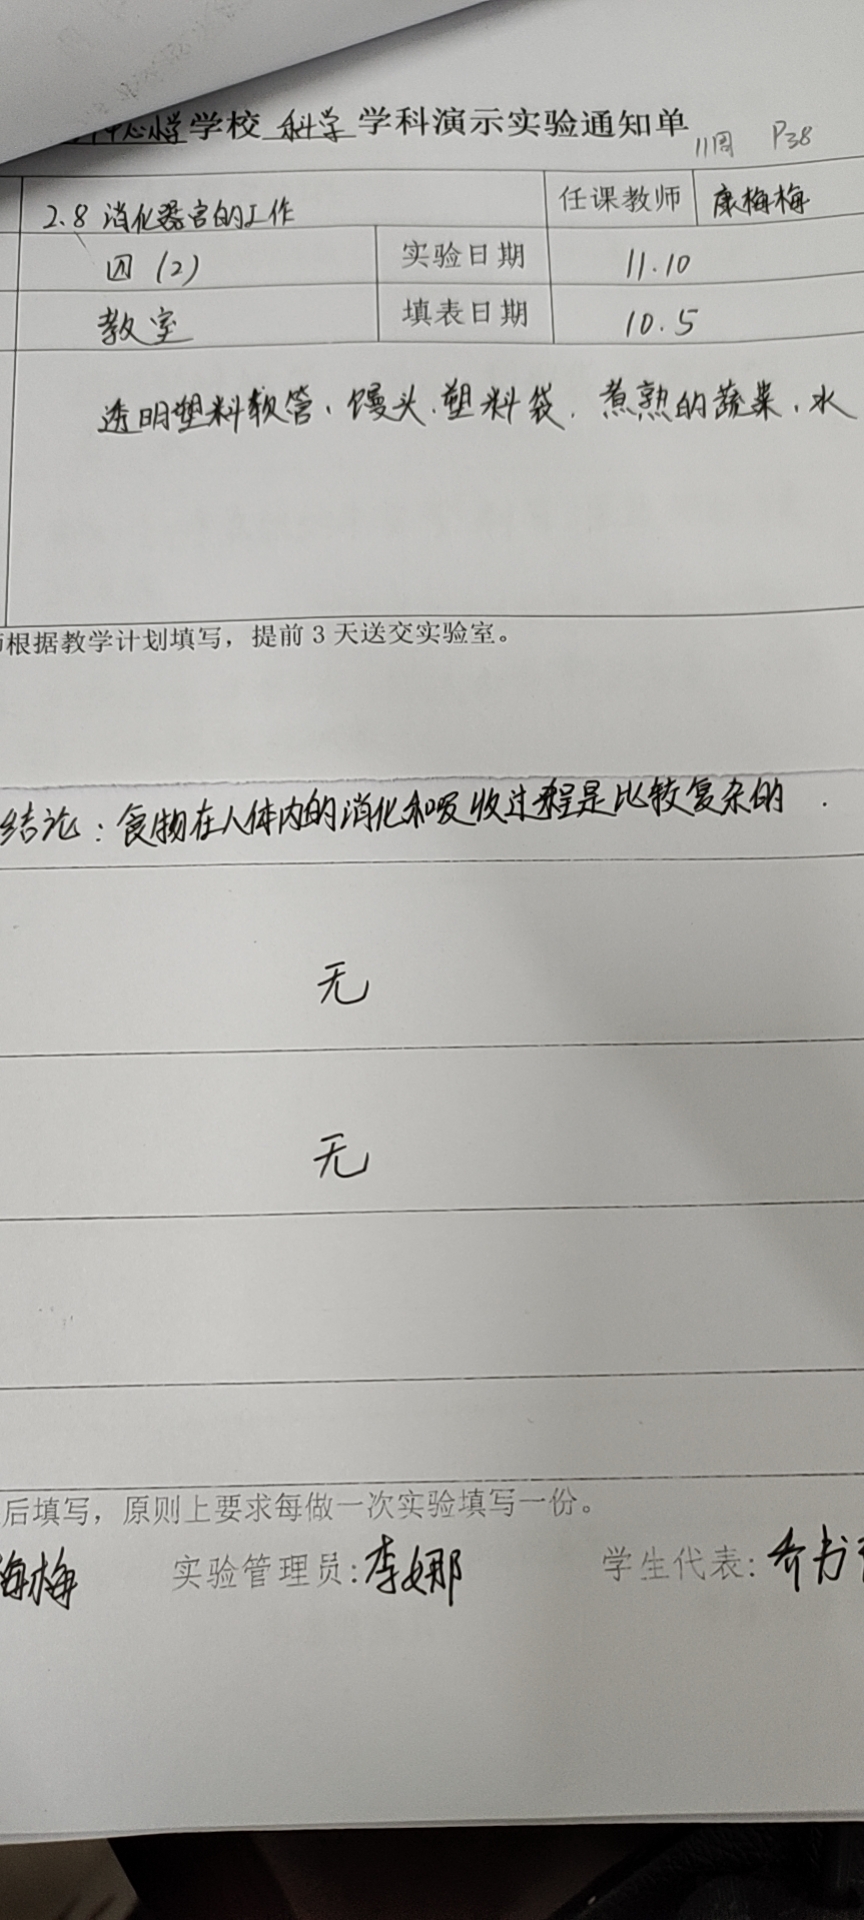 中心小学学校 科学 学科演示实验通知单 11周 P38
2.8 消化器官的工作 任课教师 康梅梅
四(2) 实验日期 11.10
教室 填表日期 10.5
透明塑料软管、馒头、塑料袋、煮熟的蔬菜、水
根据教学计划填写，提前 3 天送交实验室。
结论：食物在人体内的消化和吸收过程是比较复杂的.
无
无
后填写，原则上要求每做一次实验填写一份。
梅梅 实验管理员:李娜 学生代表:乔书